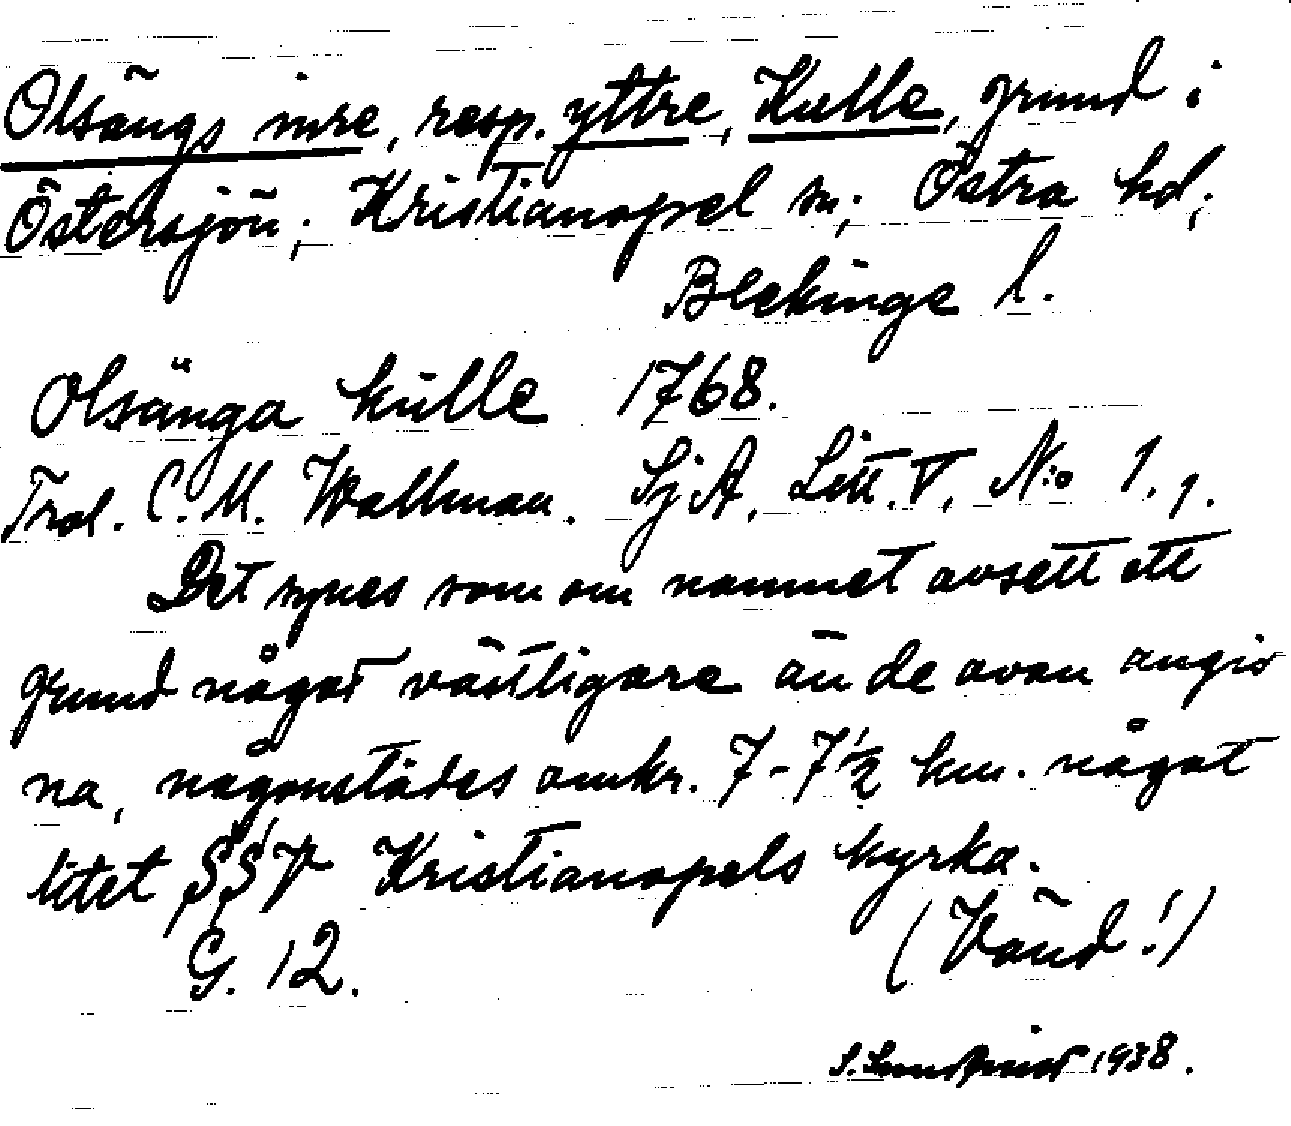 Olsängs inre, resp. yttre, Kulle, grund i
Östersjön; Kristianopel sn; Östra hd;
Blekinge l.
Olsänga kulle 1768.
Trol. C. M. Wallman. SjA, Litt. V, N:o 1, 1.
Det synes som om namnet avsett ett
grund något västligare än de ovan angiv
na, någonstädes omkr. 7-7½ km. något
litet SSV Kristianopels kyrka.
G. 12. (Vänd!)
S. Lundqvist 1938.